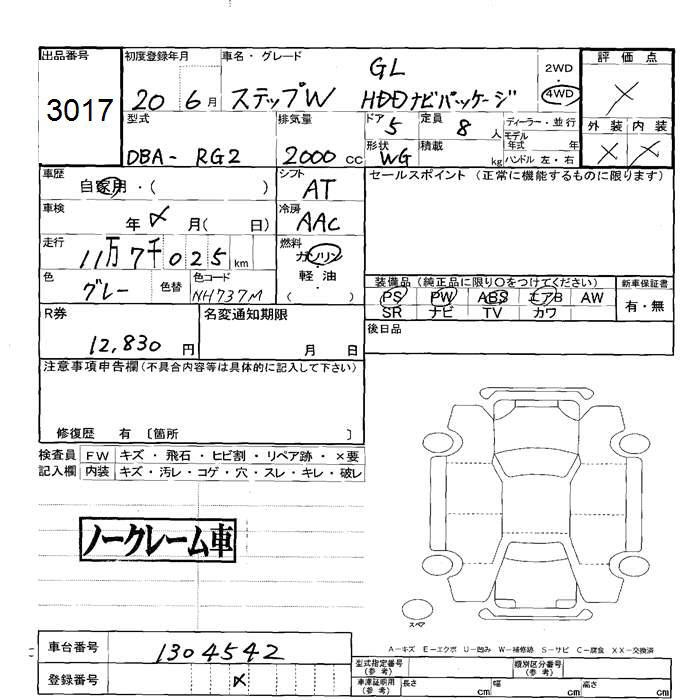 出品番号
3017
初度登録年月
20 6月
車名・グレード
ステップW GL
HDDナビパッケージ
2WD
4WD
評価点
×
外装 内装
× ×
型式
DBA- RG2
排気量
2000cc
ドア 5
形状 WG
定員 8人
積載 kg
ディーラー・並行
モデル年式 年
ハンドル 左・右
車歴
自家用・( )
シフト
AT
セールスポイント(正常に機能するものに限ります)
車検
年 〆 月( 日)
冷房
AAC
走行
11万7千025km
燃料
ガソリン
・
軽油
・
( )
色
グレー
色替
色コード
NH737M
装備品(純正品に限り○をつけてください)
PS PW ABS エアB AW
SR ナビ TV カワ
新車保証書
有・無
R券
12,830円
名変通知期限
月 日
後日品
注意事項申告欄(不具合内容等は具体的に記入して下さい)
修復歴 有 〔箇所 〕
検査員記入欄
FW キズ・飛石・ヒビ割・リペア跡・×要
内装 キズ・汚レ・コゲ・穴・スレ・キレ・破レ
ノークレーム車
スペア
A-キズ E-エクボ U-凹み W-補修跡 S-サビ C-腐食 XX-交換済
車台番号
1304542
登録番号
〆
型式指定番号(参考)
類別区分番号(参考)
車庫証明用(参考)
長さ cm
幅 cm
高さ cm